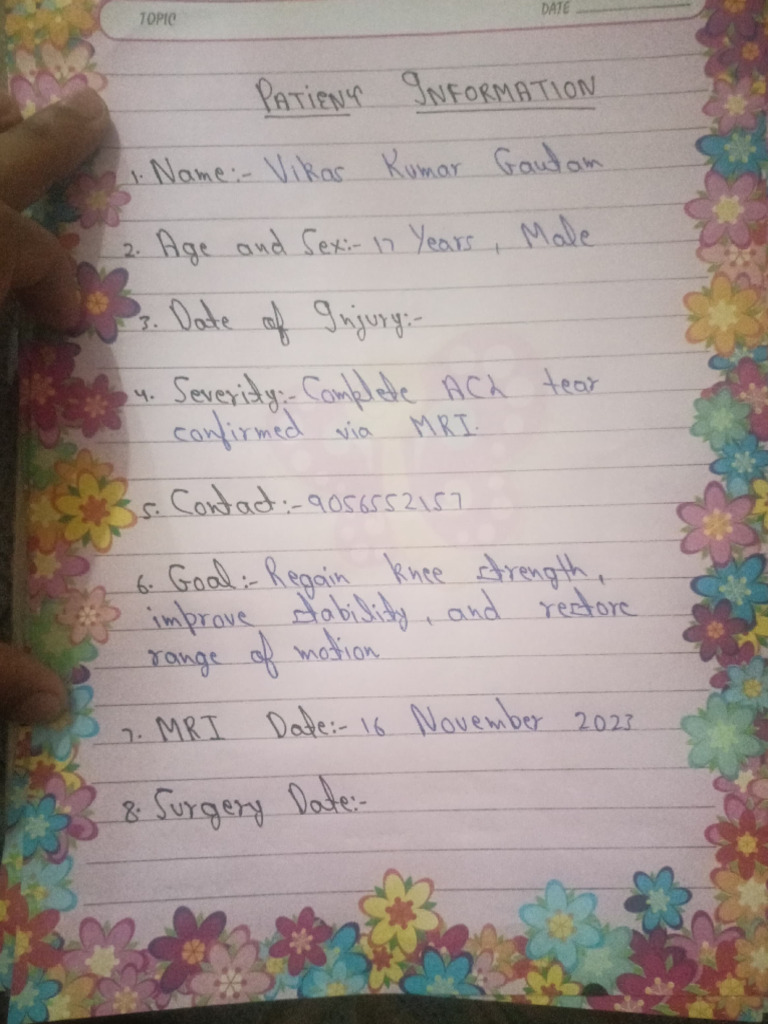 TOPIC
DATE
PATIENT INFORMATION
1. Name:- Vikas Kumar Gautam
2. Age and Sex:- 17 Years, Male
3. Date of Injury:-
4. Severity:- Complete ACL tear
confirmed via MRI.
5. Contact:- 9056552157
6. Goal:- Regain knee strength,
improve stability, and restore
range of motion
7. MRI Date:- 16 November 2023
8. Surgery Date:-